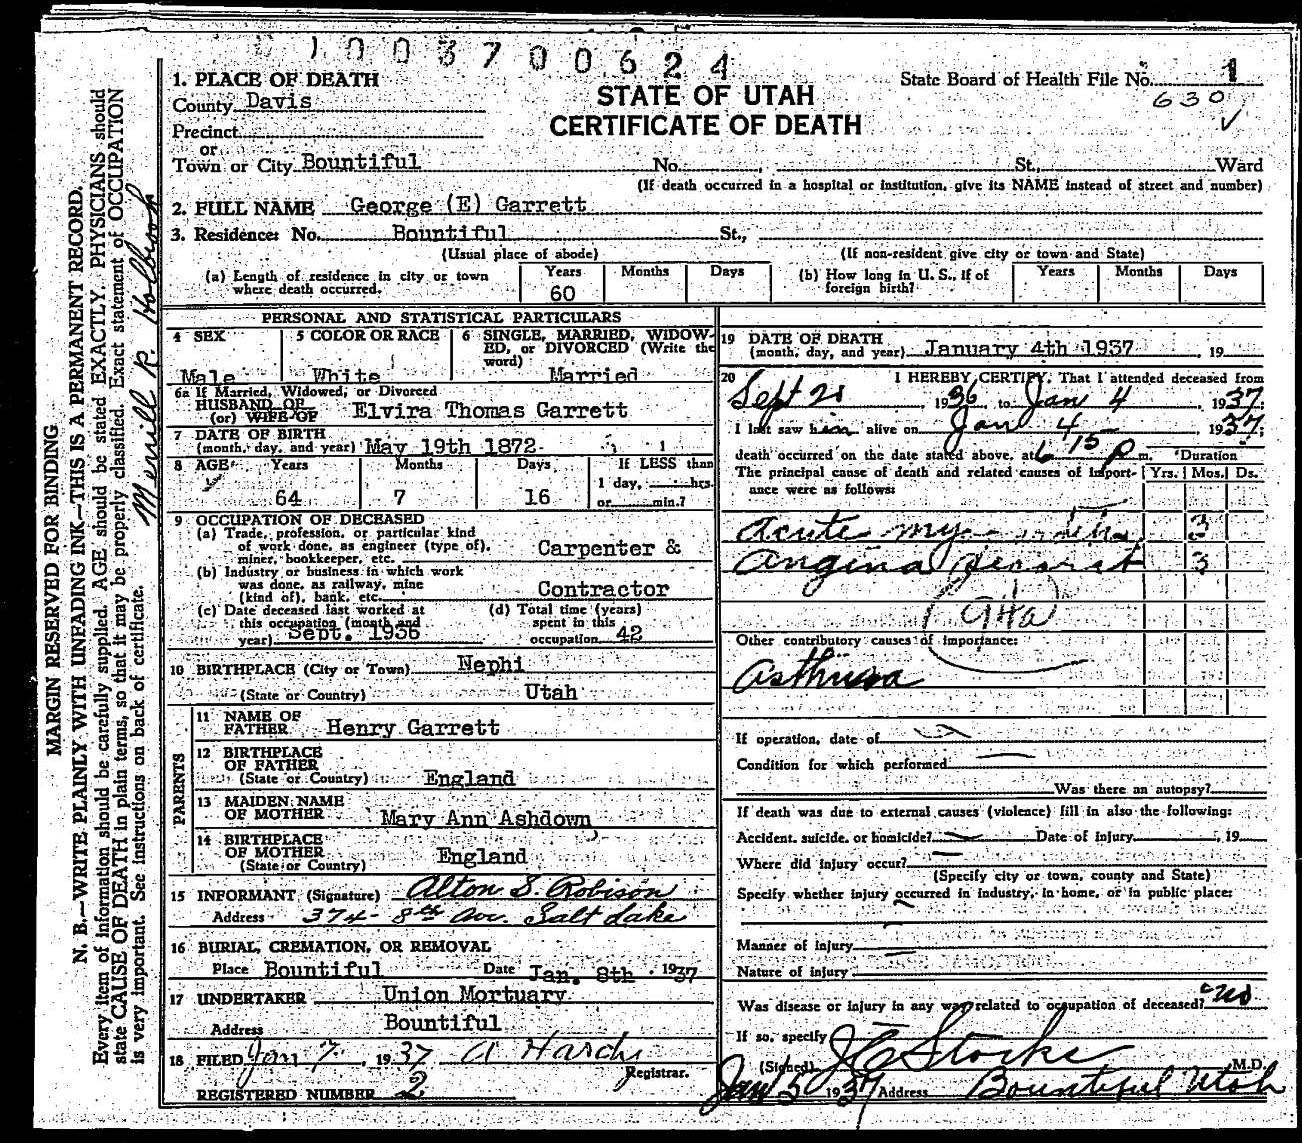 1003700624
1. PLACE OF DEATH
County Davis
Precinct
or
Town or City Bountiful No. , St., Ward
State Board of Health File No. 1
630 ✓
STATE OF UTAH
CERTIFICATE OF DEATH
(If death occurred in a hospital or institution, give its NAME instead of street and number)
2. FULL NAME George (E) Garrett
3. Residence: No. Bountiful St.,
(Usual place of abode) (If non-resident give city or town and State)
(a) Length of residence in city or town where death occurred. Years 60 Months Days
(b) How long in U. S., if of foreign birth? Years Months Days
PERSONAL AND STATISTICAL PARTICULARS
4 SEX Male
5 COLOR OR RACE White
6 SINGLE, MARRIED, WIDOW-
ED, or DIVORCED (Write the
word) Married
6a If Married, Widowed, or Divorced
HUSBAND OF
(or) WIFE OF Elvira Thomas Garrett
7 DATE OF BIRTH
(month, day, and year) May 19th 1872
8 AGE Years Months Days If LESS than
1 day, hrs.
64 7 16 or min.?
9 OCCUPATION OF DECEASED
(a) Trade, profession, or particular kind
of work done, as engineer (type of),
miner, bookkeeper, etc. Carpenter &
(b) Industry or business in which work
was done, as railway, mine
(kind of), bank, etc. Contractor
(c) Date deceased last worked at
this occupation (month and
year) Sept. 1936
(d) Total time (years)
spent in this
occupation 42
10 BIRTHPLACE (City or Town) Nephi
(State or Country) Utah
PARENTS
11 NAME OF
FATHER Henry Garrett
12 BIRTHPLACE
OF FATHER
(State or Country) England
13 MAIDEN NAME
OF MOTHER Mary Ann Ashdown
14 BIRTHPLACE
OF MOTHER
(State or Country) England
15 INFORMANT (Signature) Alton S. Robison
Address 374 - 8th Ave. Salt Lake
16 BURIAL, CREMATION, OR REMOVAL
Place Bountiful Date Jan. 8th 1937
17 UNDERTAKER Union Mortuary
Address Bountiful
18 FILED Jan 7, 1937 A Hardy
Registrar.
REGISTERED NUMBER 2
19 DATE OF DEATH
(month, day, and year) January 4th 1937, 19
20 I HEREBY CERTIFY, That I attended deceased from
Sept 21, 1936, to Jan 4, 1937;
I last saw him alive on Jan 4, 1937;
death occurred on the date stated above, at 6 15 p m. Duration
The principal cause of death and related causes of import-
ance were as follows: Yrs. Mos. Ds.
Acute 3
Angina 3
Other contributory causes of importance:
Asthma
If operation, date of
Condition for which performed
Was there an autopsy?
If death was due to external causes (violence) fill in also the following:
Accident, suicide, or homicide? Date of injury , 19
Where did injury occur?
(Specify city or town, county and State)
Specify whether injury occurred in industry, in home, or in public place:
Manner of injury
Nature of injury
Was disease or injury in any way related to occupation of deceased? No
If so, specify
(Signed) J C Stocks M.D.
Jan 5 1937 Address Bountiful Utah
MARGIN RESERVED FOR BINDING
N. B.—WRITE PLAINLY WITH UNFADING INK—THIS IS A PERMANENT RECORD.
Every item of information should be carefully supplied. AGE should be stated EXACTLY. PHYSICIANS should
state CAUSE OF DEATH in plain terms, so that it may be properly classified. Exact statement of OCCUPATION
is very important. See instructions on back of certificate.
Merrill R Holbrook